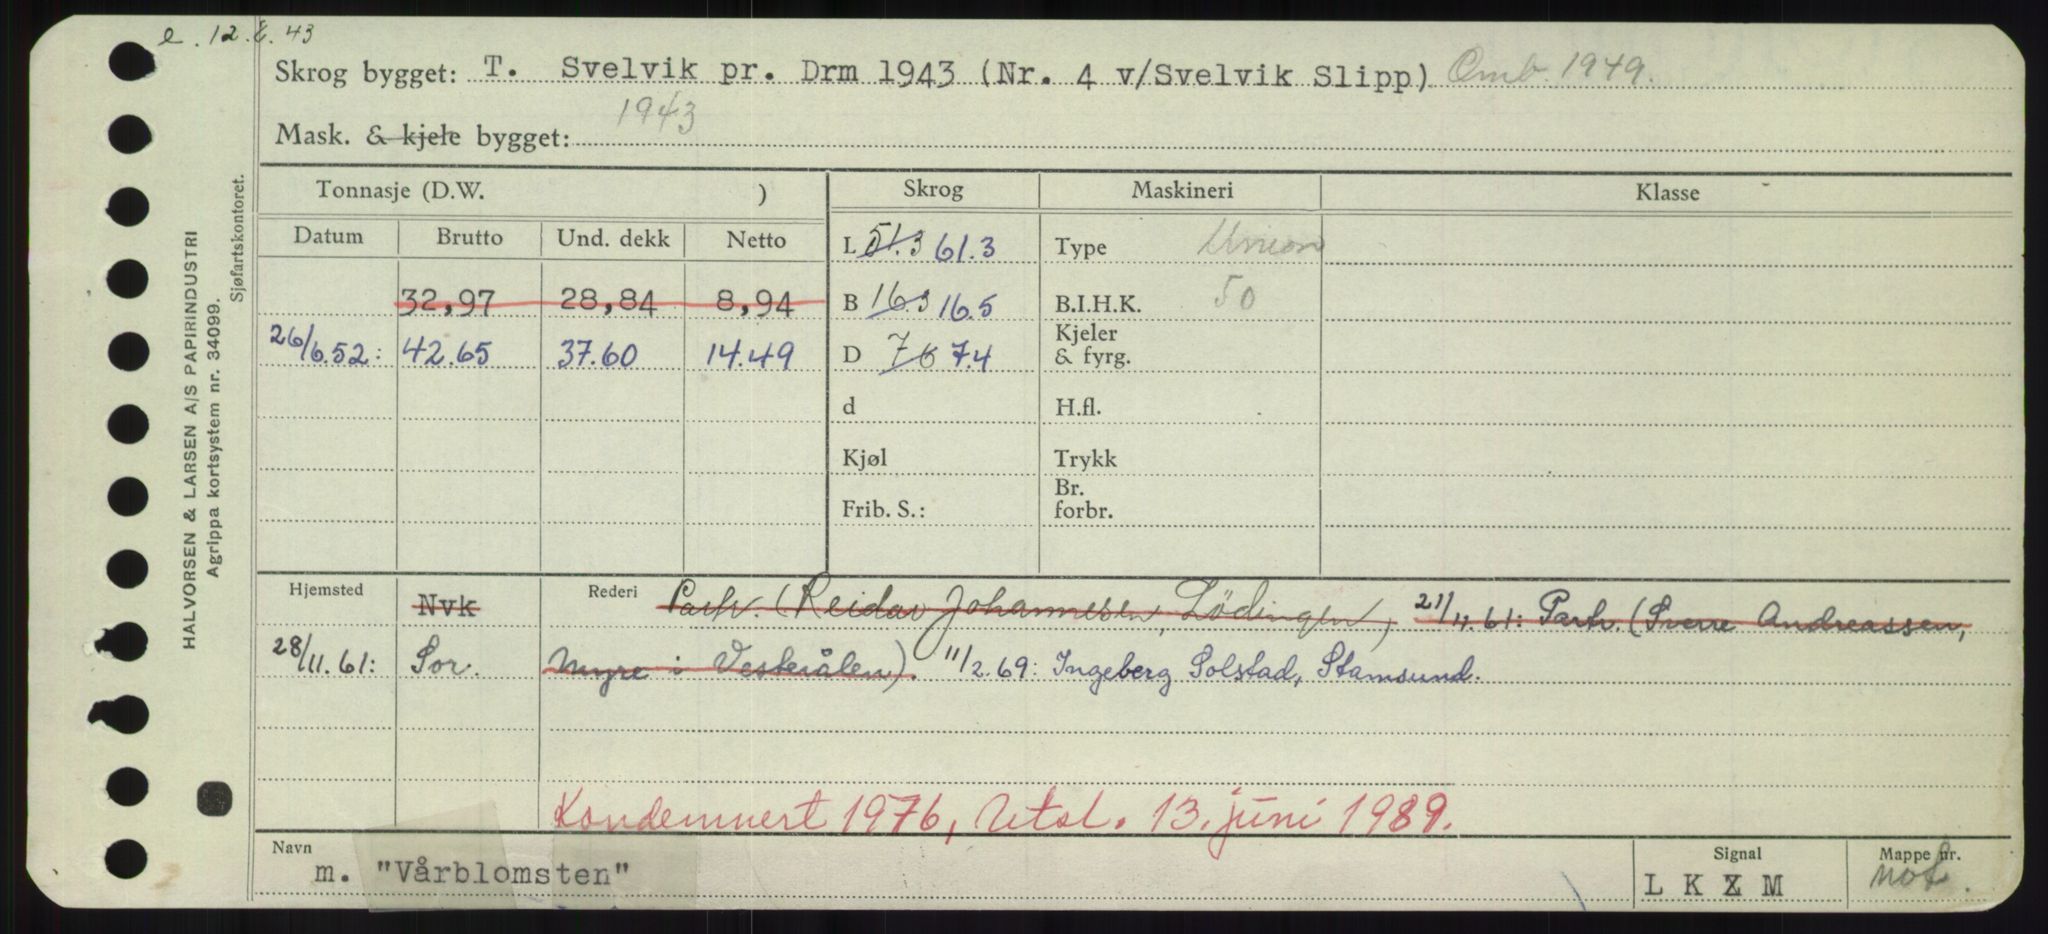 e. 12.6.43
Skrog bygget: T. Svelvik pr. Drm 1943 (Nr. 4 v/Svelvik Slipp) Omb. 1949.
Mask. & kjele bygget: 1943
Tonnasje (D.W. ) Skrog Maskineri Klasse
Datum Brutto Und. dekk Netto L 51.3 61.3 Type Union
32,97 28,84 8,94 B 16.3 16.5 B.I.H.K. 50
26/6.52: 42.65 37.60 14.49 D 7.6 7.4 Kjeler & fyrg.
d H.fl.
Kjøl Trykk
Frib. S.: Br. forbr.
Hjemsted Nvk Rederi Partr. (Reidar Johannesen, Lödingen) 21/11.61: Partr. (Sverre Andreassen,
28/11.61: Sor. Myre i Vesterålen). 11/2.69: Ingeberg Solstad, Stamsund.
Kondemnert 1976, Utsl. 13. juni 1989.
Navn Signal Mappe nr.
m. "Vårblomsten" L K X M not.
HALVORSEN & LARSEN A/S PAPIRINDUSTRI
Agrippa kortsystem nr. 34099.
Sjøfartskontoret.